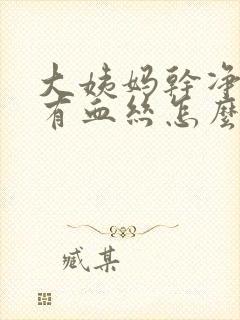 大姨妈幹净
有血丝怎麼
臧某